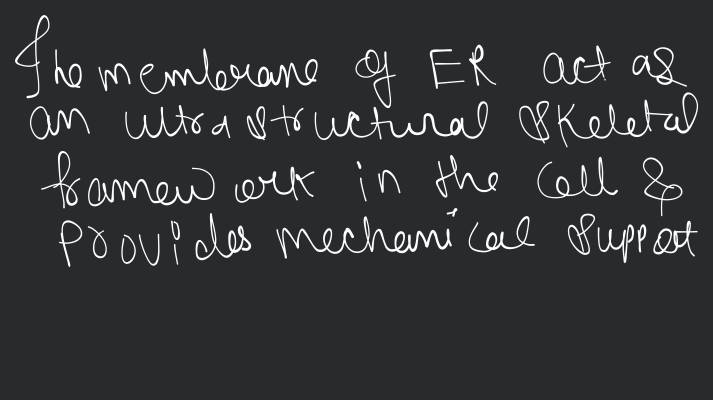 The membrane of ER act as
an ultra structural skeletal
framework in the cell &
provides mechanical support